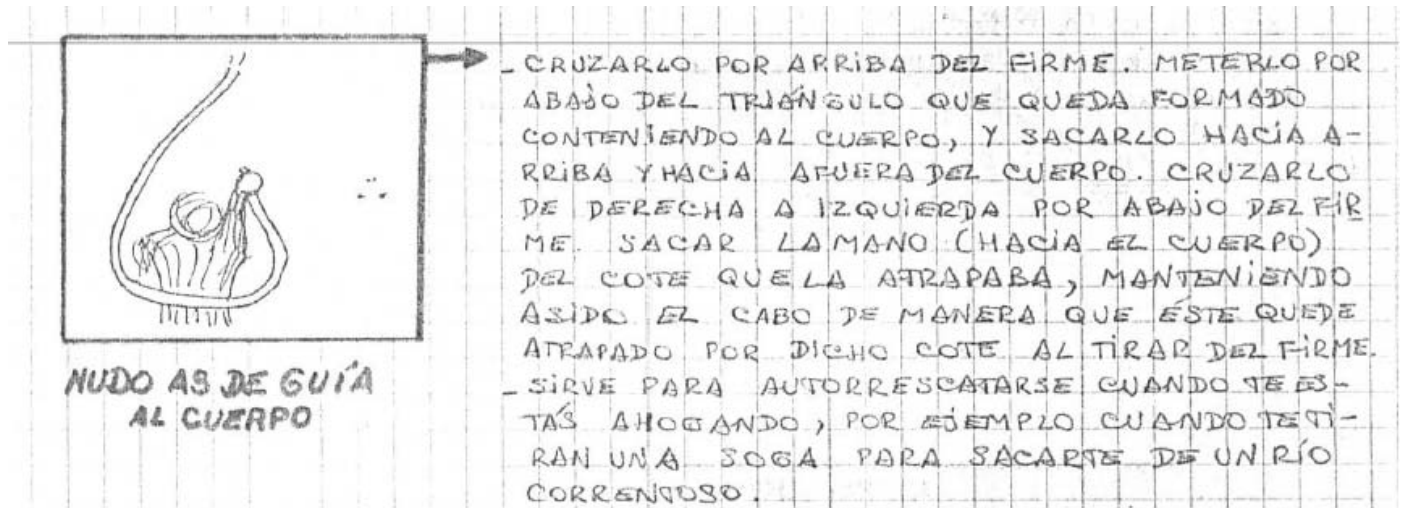 - CRUZARLO POR ARRIBA DEL FIRME. METERLO POR
ABAJO DEL TRIÁNGULO QUE QUEDA FORMADO
CONTENIENDO AL CUERPO, Y SACARLO HACIA A-
RRIBA Y HACIA AFUERA DEL CUERPO. CRUZARLO
DE DERECHA A IZQUIERDA POR ABAJO DEL FIR
ME. SACAR LA MANO (HACIA EL CUERPO)
DEL COTE QUE LA ATRAPABA, MANTENIENDO
ASIDO EL CABO DE MANERA QUE ÉSTE QUEDE
ATRAPADO POR DICHO COTE AL TIRAR DEL FIRME.
- SIRVE PARA AUTORRESCATARSE CUANDO TE ES-
TÁS AHOGANDO, POR EJEMPLO CUANDO TE TI-
RAN UNA SOGA PARA SACARTE DE UN RÍO
CORRENTOSO.
NUDO AS DE GUÍA
AL CUERPO